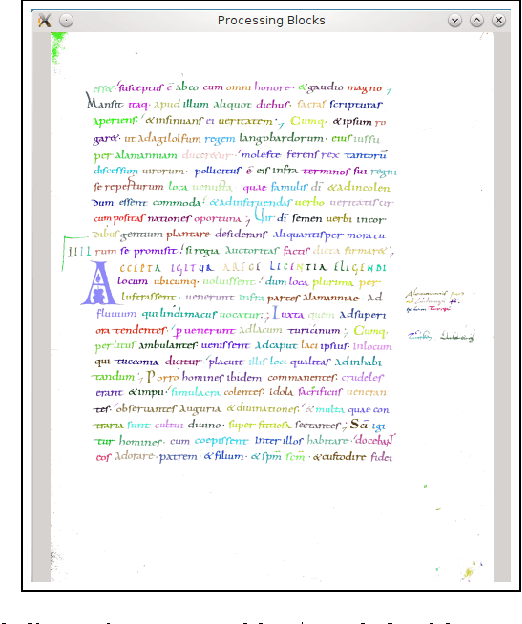 Processing Blocks
esse susceptus ē ab co cum omni honore · & gaudio magno ;
Mansit itaq · apud illum aliquot diebus · sacras scripturas
aperiens · & insinuans ei ueritatem · Cumq · & ipsum ro
gare · ut ad agiloifum regem langobardorum · eius iussu
per alamanniam moleste ferens rex tantorū
discessum uirorum · polliatus ē eis infra terminos sui regni
se reperturum loca uenusta quae famulis dī & ad incolen
dum essent commoda · & ad instruendas uerbo ueritatis cir
cumpositas nationes oportuna ; Uir dī senen uerbi incor
gentium plantare desiderans aliquantisper
IIII rum se promisit · si regia auctoritas factis dicta firmar&
ACCEPTA IGITUR LICENTIA ELIGENDI
locum ubicumq · uoluissent · dum loca plurima per
lustrassent · uenerunt infra partes alamanniae ad
fluuium qui lindimacus uocatur ; Iuxta quem ad superi
ora tendentes · puenerunt ad lacum turicinum ; Cumq ·
per litus ambulantes uenissent ad caput laci ipsius · in locum
qui tucconia dicitur · placuit illis loci qualitas ad inhabi
tandum ; Porro homines ibidem commanentes · crudeles
erant & impii · simulacra colentes · idola sacrificiis ueneran
tes · obseruantes auguria & diuinationes · & multa quae con
traria sunt cultui diuino · superstitiosa sectantes ; Scī igi
tur homines · cum coepissent inter illos habitare · doceba͞t
eos adorare · patrem & filium · & spm̄ scm̄ · & custodire fidei